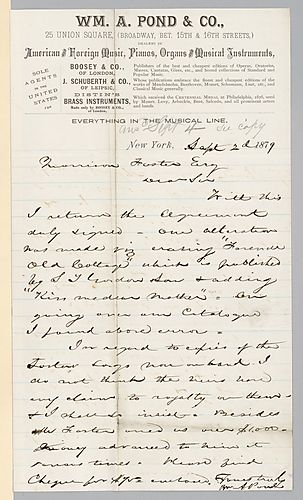 WM. A. POND & CO.,
25 UNION SQUARE, (BROADWAY, BET. 15TH & 16TH STREETS,)
DEALERS IN
American and Foreign Music, Pianos, Organs and Musical Instruments,
SOLE AGENTS IN THE UNITED STATES FOR
BOOSEY & CO., OF LONDON,
J. SCHUBERTH & CO. OF LEIPSIC,
DISTIN'S BRASS INSTRUMENTS,
Made only by BOOSEY & CO., of London,
Publishers of the best and cheapest editions of Operas, Oratorios, Masses, Cantatas, Glees, etc., and Second collections of Standard and Popular Music.
Whose publications embrace the finest and cheapest editions of the works of Mendelssohn, Beethoven, Mozart, Schumann, Liszt, etc., and Classical Music generally.
Which received the CENTENNIAL MEDAL at Philadelphia, 1876, used by Messrs. Levy, Arbuckle, Bent, Schools, and all prominent artists and bands.
EVERYTHING IN THE MUSICAL LINE.
ans Sept 4 see copy
New York, Sept 2d 1879
Morrison Foster Esq
Dear Sir
With this
I return the Agreement
duly signed – One alteration
was made viz erasing "Farewell
Old Cottage" which is published
by S T Gordon & Son & adding
"Kiss me dear Mother" – On
going over our Catalogue
I found above error –
In regard to copies of the
Foster Songs now on hand. I
do not think the heirs have
any claim to royalty on them –
& I shall so insist – Besides
Mr Foster owed us over $1000–
Money advanced to him at
various times – Please find
Cheque for enclosed Yours truly
Wm A Pond